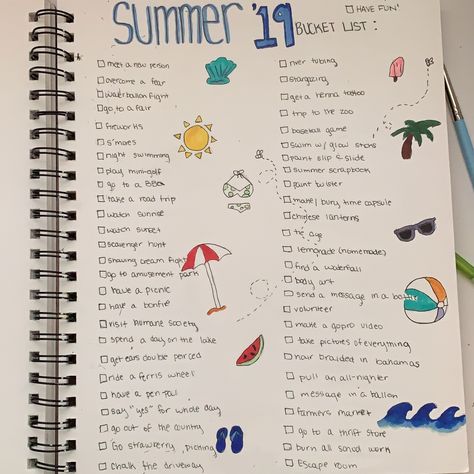 SUMMER '19
BUCKET LIST :
HAVE FUN!
meet a new person
overcome a fear
water balloon fight
go to a fair
fireworks
s'mores
night swimming
play mini-golf
go to a BBQ
take a road trip
watch sunrise
watch sunset
scavenger hunt
shaving cream fight
go to amusement park
have a picnic
have a bonfire
visit humane society
spend a day on the lake
get ears double pierced
ride a ferris wheel
have a pen pal
say "yes" for whole day
go out of the country
Go strawberry picking
chalk the driveway
river tubing
stargazing
get a henna tattoo
trip to the zoo
baseball game
swim w/ glow sticks
paint slip & slide
summer scrapbook
paint twister
make/bury time capsule
chinese lanterns
tie dye
lemonade (homemade)
find a waterfall
body art
send a message in a bottle
volunteer
make a gopro video
take pictures of everything
hair braided in bahamas
pull an all-nighter
message in a balloon
farmers market
go to a thrift store
burn all school work
Escape room